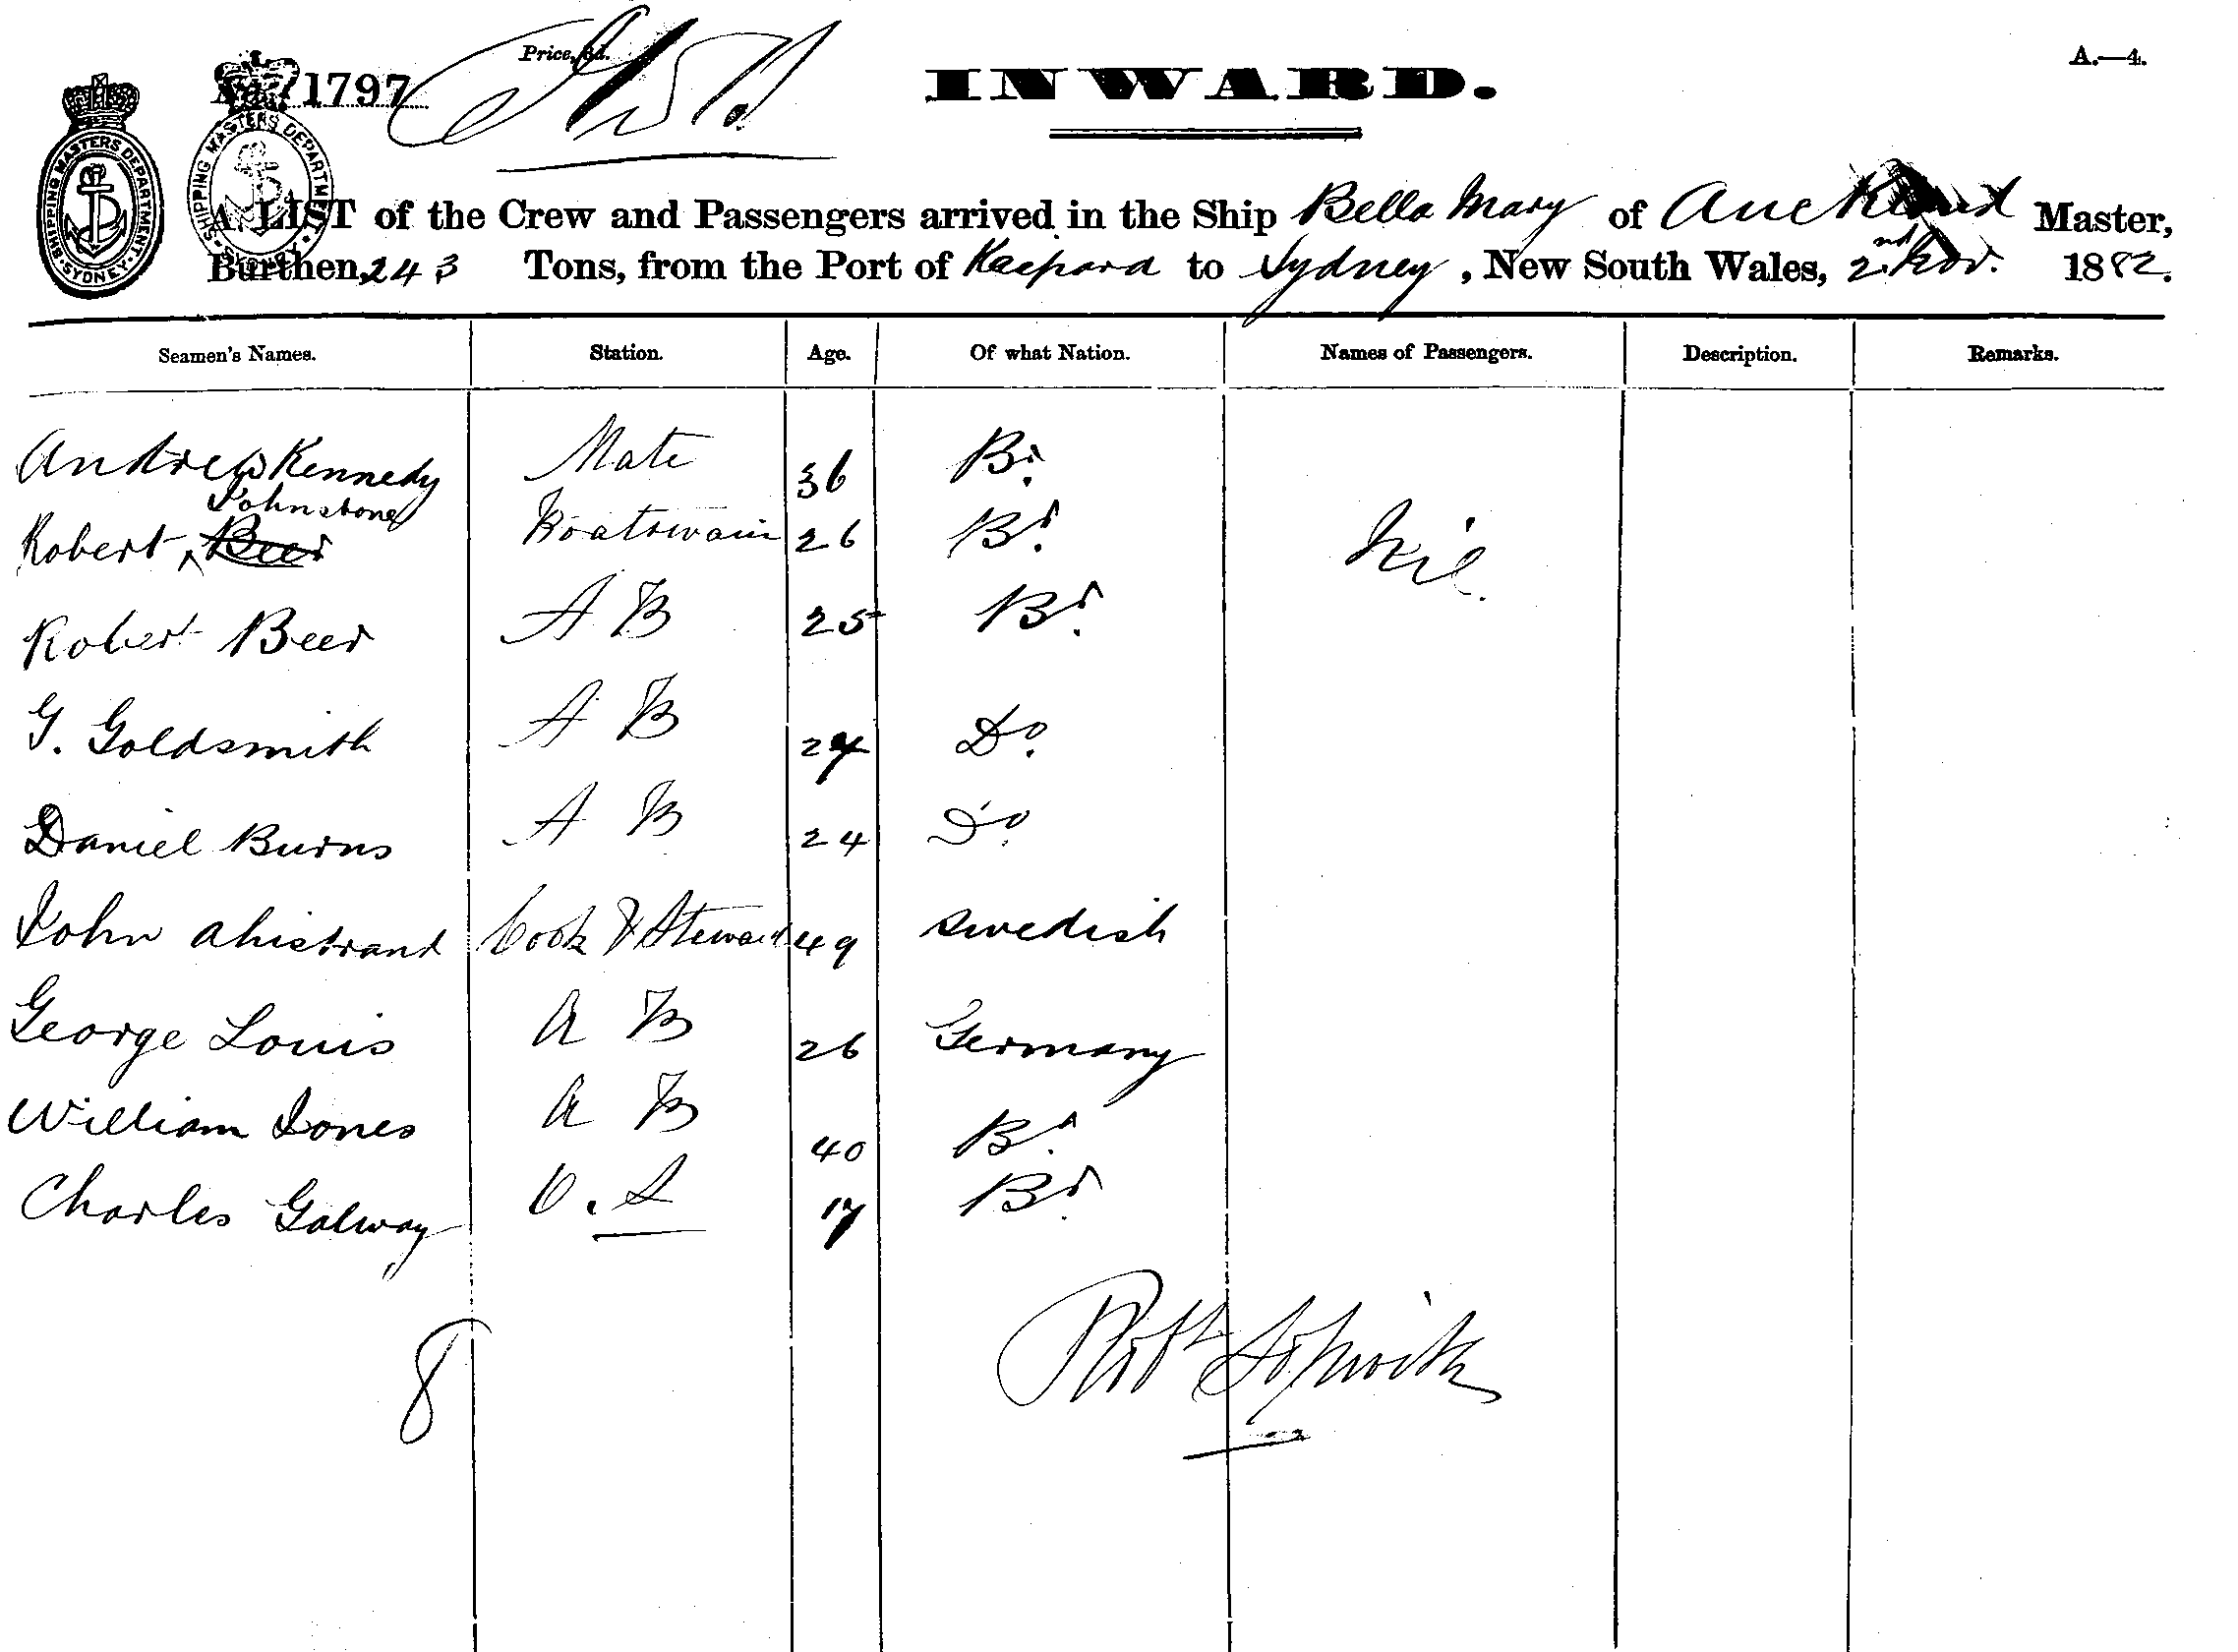 Price, 3d.
A.—4.
No. 1797
INWARD.
SHIPPING MASTERS DEPARTMENT
SYDNEY
SHIPPING MASTERS DEPARTMENT
A LIST of the Crew and Passengers arrived in the Ship Bella Mary of Auckland Master,
Burthen, 243 Tons, from the Port of Kaipara to Sydney, New South Wales, 2nd Nov. 1882.
Seamen's Names. Station. Age. Of what Nation. Names of Passengers. Description. Remarks.
Andrew Kennedy Mate 36 Br.
Johnstone
Robert Beer Boatswain 26 Br. Nil.
Robert Beer A B 25 Br.
G. Goldsmith A B 27 Do.
Daniel Burns A B 24 Do.
John Ahistrand Cook & Steward 49 Swedish
George Louis A B 26 Germany
William Jones A B 40 Br.
Charles Galway O.S 17 Br.
8
Robt Sopwith